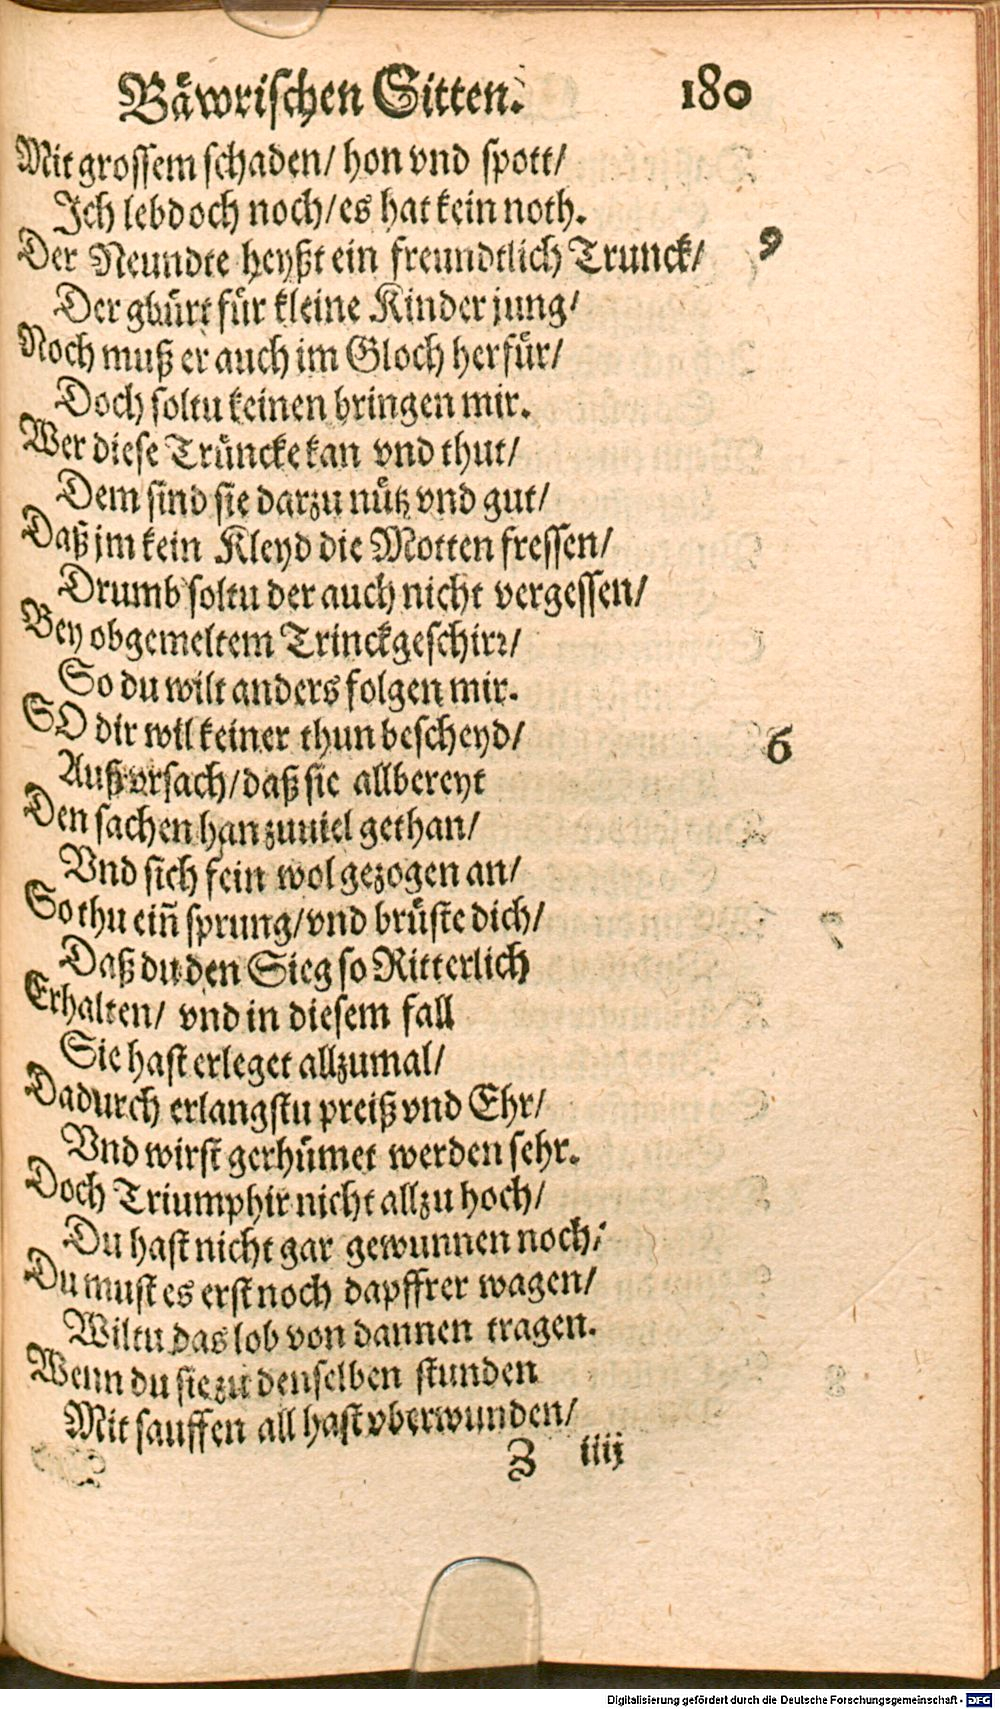 Bäwrischen Sitten. 180
Mit grossem schaden/ hon vnd spott/
Ich leb doch noch/ es hat kein noth.
Der Neundte heyßt ein freundtlich Trunck/ 9
Der gbürt für kleine Kinder jung/
Noch muß er auch im Gloch herfür/
Doch soltu keinen bringen mir.
Wer diese Trüncke kan vnd thut/
Dem sind sie darzu nütz vnd gut/
Daß jm kein Kleyd die Motten fressen/
Drumb soltu der auch nicht vergessen/
Bey obgemeltem Trinckgeschirr/
So du wilt anders folgen mir.
SO dir wil keiner thun bescheyd/ 6
Auß vrsach/ daß sie allbereyt
Den sachen han zuuiel gethan/
Vnd sich fein wol gezogen an/
So thu ein̄ sprung/ vnd brüste dich/
Daß du den Sieg so Ritterlich
Erhalten/ vnd in diesem fall
Sie hast erleget allzumal/
Dadurch erlangstu preiß vnd Ehr/
Vnd wirst gerhümet werden sehr.
Doch Triumphir nicht allzu hoch/
Du hast nicht gar gewunnen noch/
Du must es erst noch dapffrer wagen/
Wiltu das lob von dannen tragen.
Wenn du sie zu denselben stunden
Mit sauffen all hast vberwunden/
Z iiij
Digitalisierung gefördert durch die Deutsche Forschungsgemeinschaft - DFG